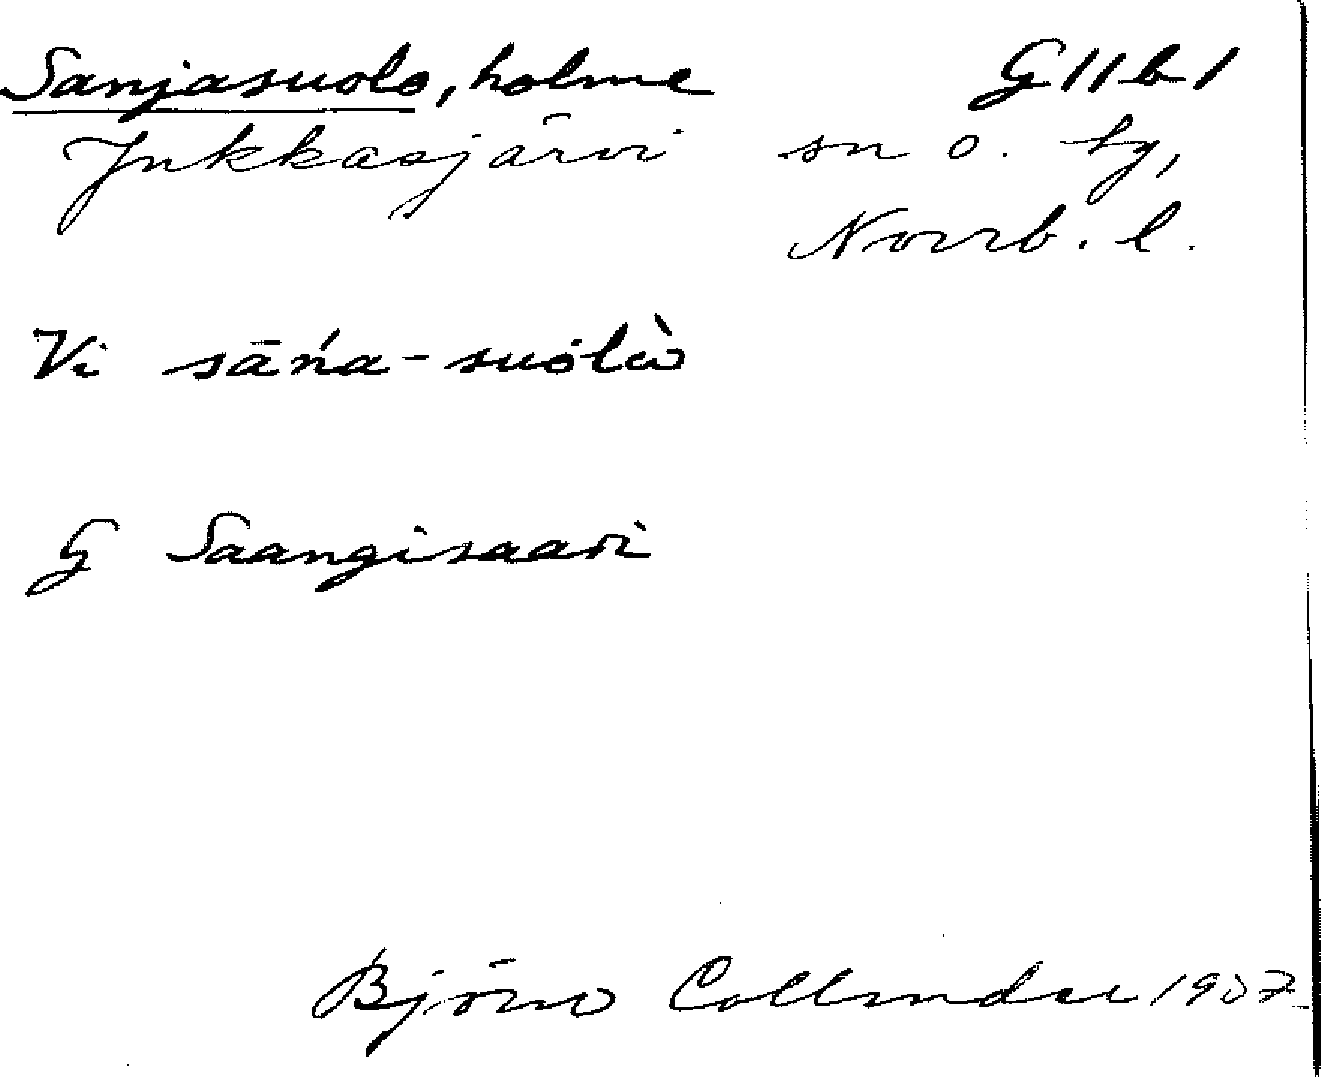 Sanjasuolo, holme G11b1
Jukkasjärvi sn o. tg,
Norrb. l.
Vi sāńa-suölò
G Saangisaari
Björn Collinder 1937